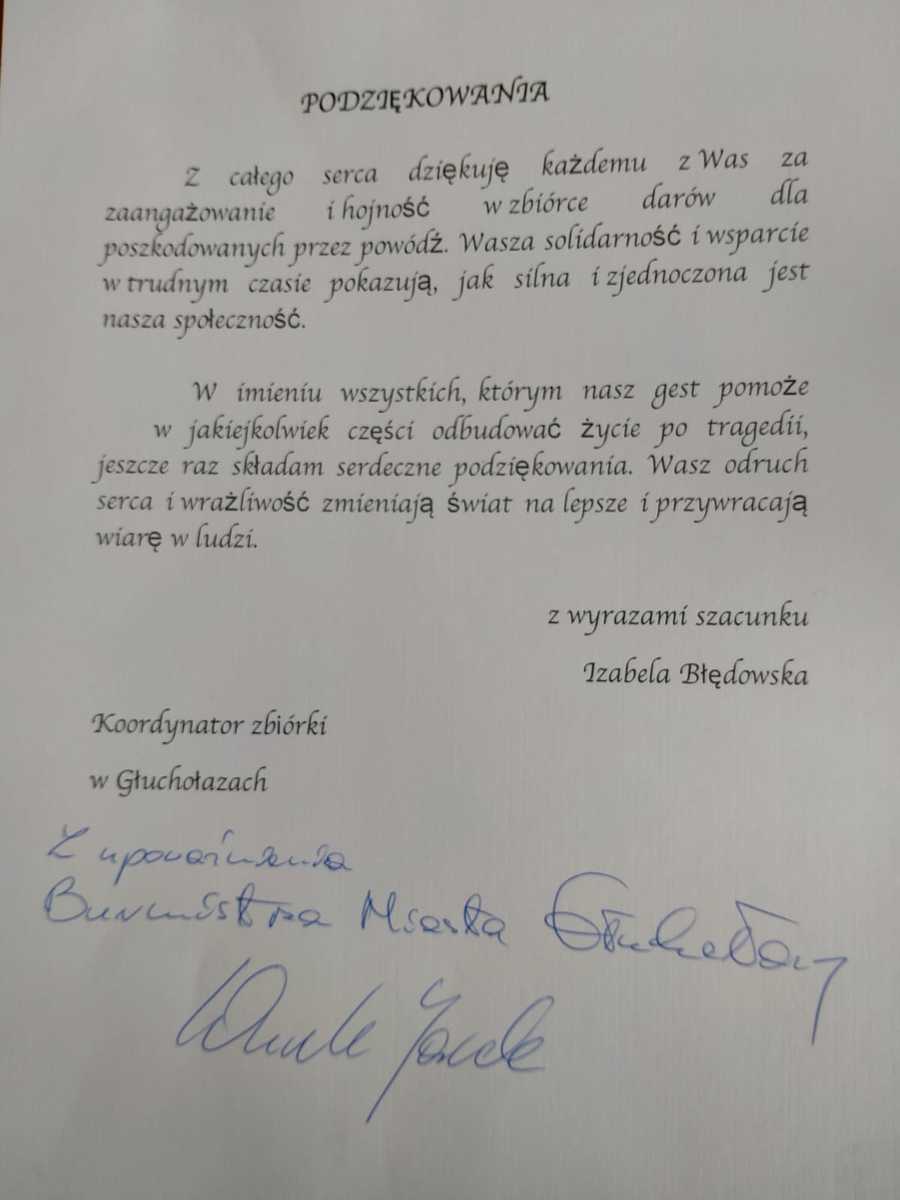 PODZIĘKOWANIA
Z całego serca dziękuję każdemu z Was za
zaangażowanie i hojność w zbiórce darów dla
poszkodowanych przez powódź. Wasza solidarność i wsparcie
w trudnym czasie pokazują, jak silna i zjednoczona jest
nasza społeczność.
W imieniu wszystkich, którym nasz gest pomoże
w jakiejkolwiek części odbudować życie po tragedii,
jeszcze raz składam serdeczne podziękowania. Wasz odruch
serca i wrażliwość zmieniają świat na lepsze i przywracają
wiarę w ludzi.
z wyrazami szacunku
Izabela Błędowska
Koordynator zbiórki
w Głuchołazach
Z upoważnienia
Burmistrza Miasta Głuchołazy
Jacek